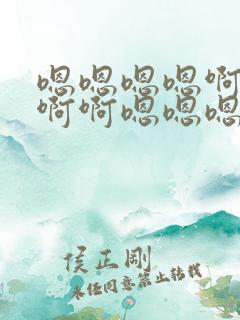 嗯嗯嗯嗯啊
啊啊嗯嗯嗯
侯正刚
未经同意禁止转载